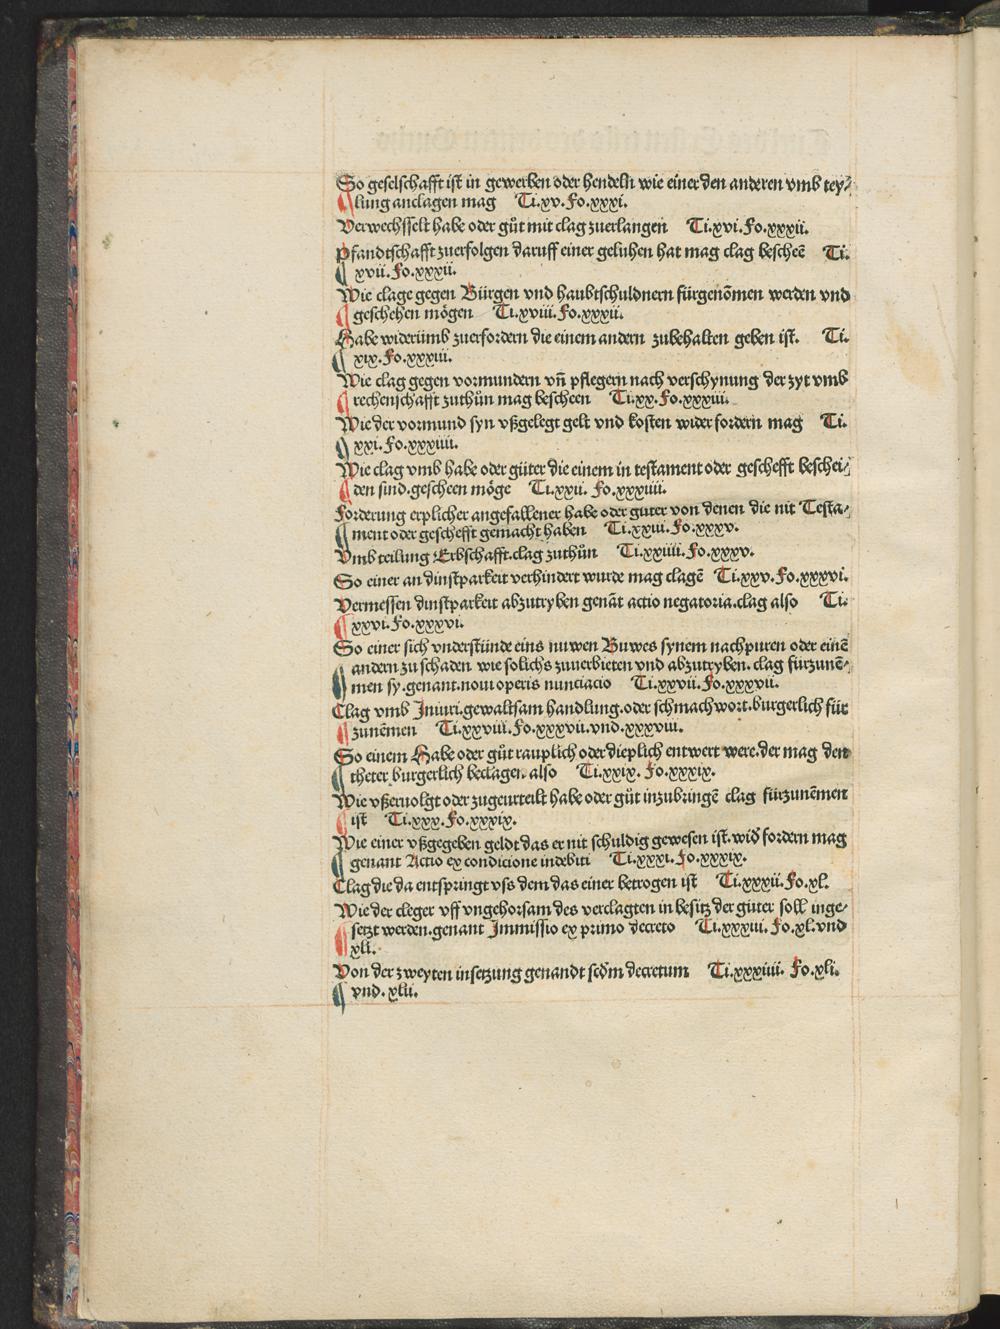 So geselschafft ist in gewerben oder hendeln wie einer den anderen vmb tey⸗
lung anclagen mag Ti.xv.Fo.xxxi.
Verwechsselt habe oder gůt mit clag zuerlangen Ti.xvi.Fo.xxxii.
Pfandtschafft zuerfolgen daruff einer geluhen hat mag clag bescheē Ti.
xvii.Fo.xxxii.
Wie clage gegen Bürgen vnd haubtschuldnern fürgenōmen werden vnd
geschehen mögen Ti.xviii.Fo.xxxii.
Habe widerümb zuerfordern die einem andern zubehalten geben ist. Ti.
xix.Fo.xxxiii.
Wie clag gegen vormundern vn̄ pflegern nach verschynung der zyt vmb
rechenschafft zuthün mag bescheen Ti.xx.Fo.xxxiii.
Wie der vormund syn vßgelegt gelt vnd kosten wider fordern mag Ti.
xxi.Fo.xxxiiii.
Wie clag vmb habe oder güter die einem in testament oder geschefft beschei⸗
den sind.gescheen möge Ti.xxii. Fo.xxxiiii.
Forderung erplicher angefallener habe oder guter von denen die nit Testa⸗
ment oder geschefft gemacht haben Ti.xxiii.Fo.xxxv.
Vmb teilung Erbschafft.clag zuthün Ti.xxiiii.Fo.xxxv.
So einer an dinstparkeit verhindert wurde mag clagē Ti.xxv.Fo.xxxvi.
Vermessen dinstparkeit abzutryben genāt actio negatoria.clag also Ti.
xxvi.Fo.xxxvi.
So einer sich vnderstünde eins nuwen Buwes synem nachpuren oder einē
andern zu schaden wie solichs zuuerbieten vnd abzutryben. clag fürzunē⸗
men sy.genant.noui operis nunciacio Ti.xxvii.Fo.xxxvii.
Clag vmb Iniuri.gewaltsam handlung.oder schmachwort.burgerlich für
zunēmen Ti.xxviii.Fo.xxxvii.vnd.xxxviii.
So einem Habe oder gůt rauplich oder dieplich entwert were.der mag den
theter burgerlich beclagen also Ti.xxix. Fo.xxxix.
Wie vßeruolgt oder zugeurteilt habe oder gůt inzubringē clag fürzunēmen
ist Ti.xxx.Fo.xxxix.
Wie einer vßgegeben geldt das er nit schuldig gewesen ist.wid̄ fordern mag
genant Actio ex condicione indebiti Ti.xxxi.Fo.xxxix.
Clag die da entspringt vss dem das einer betrogen ist Ti.xxxii.Fo.xl.
Wie der cleger vff vngehorsam des verclagten in besitz der guter soll inge⸗
setzt werden.genant Immissio ex primo decreto Ti.xxxiii. Fo.xl.vnd
xli.
Von der zweyten insetzung genandt scd̄m decretum Ti.xxxiiii. Fo.xli.
vnd. xlii.